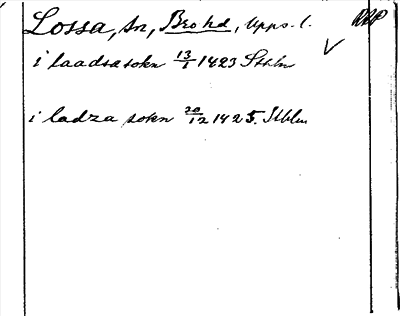 Lossa, sn, Bro hd, Upps. l. RAP
i laadsa sokn 13/1 1423 Sthlm
i ladza sokn 20/12 1425. Sthlm